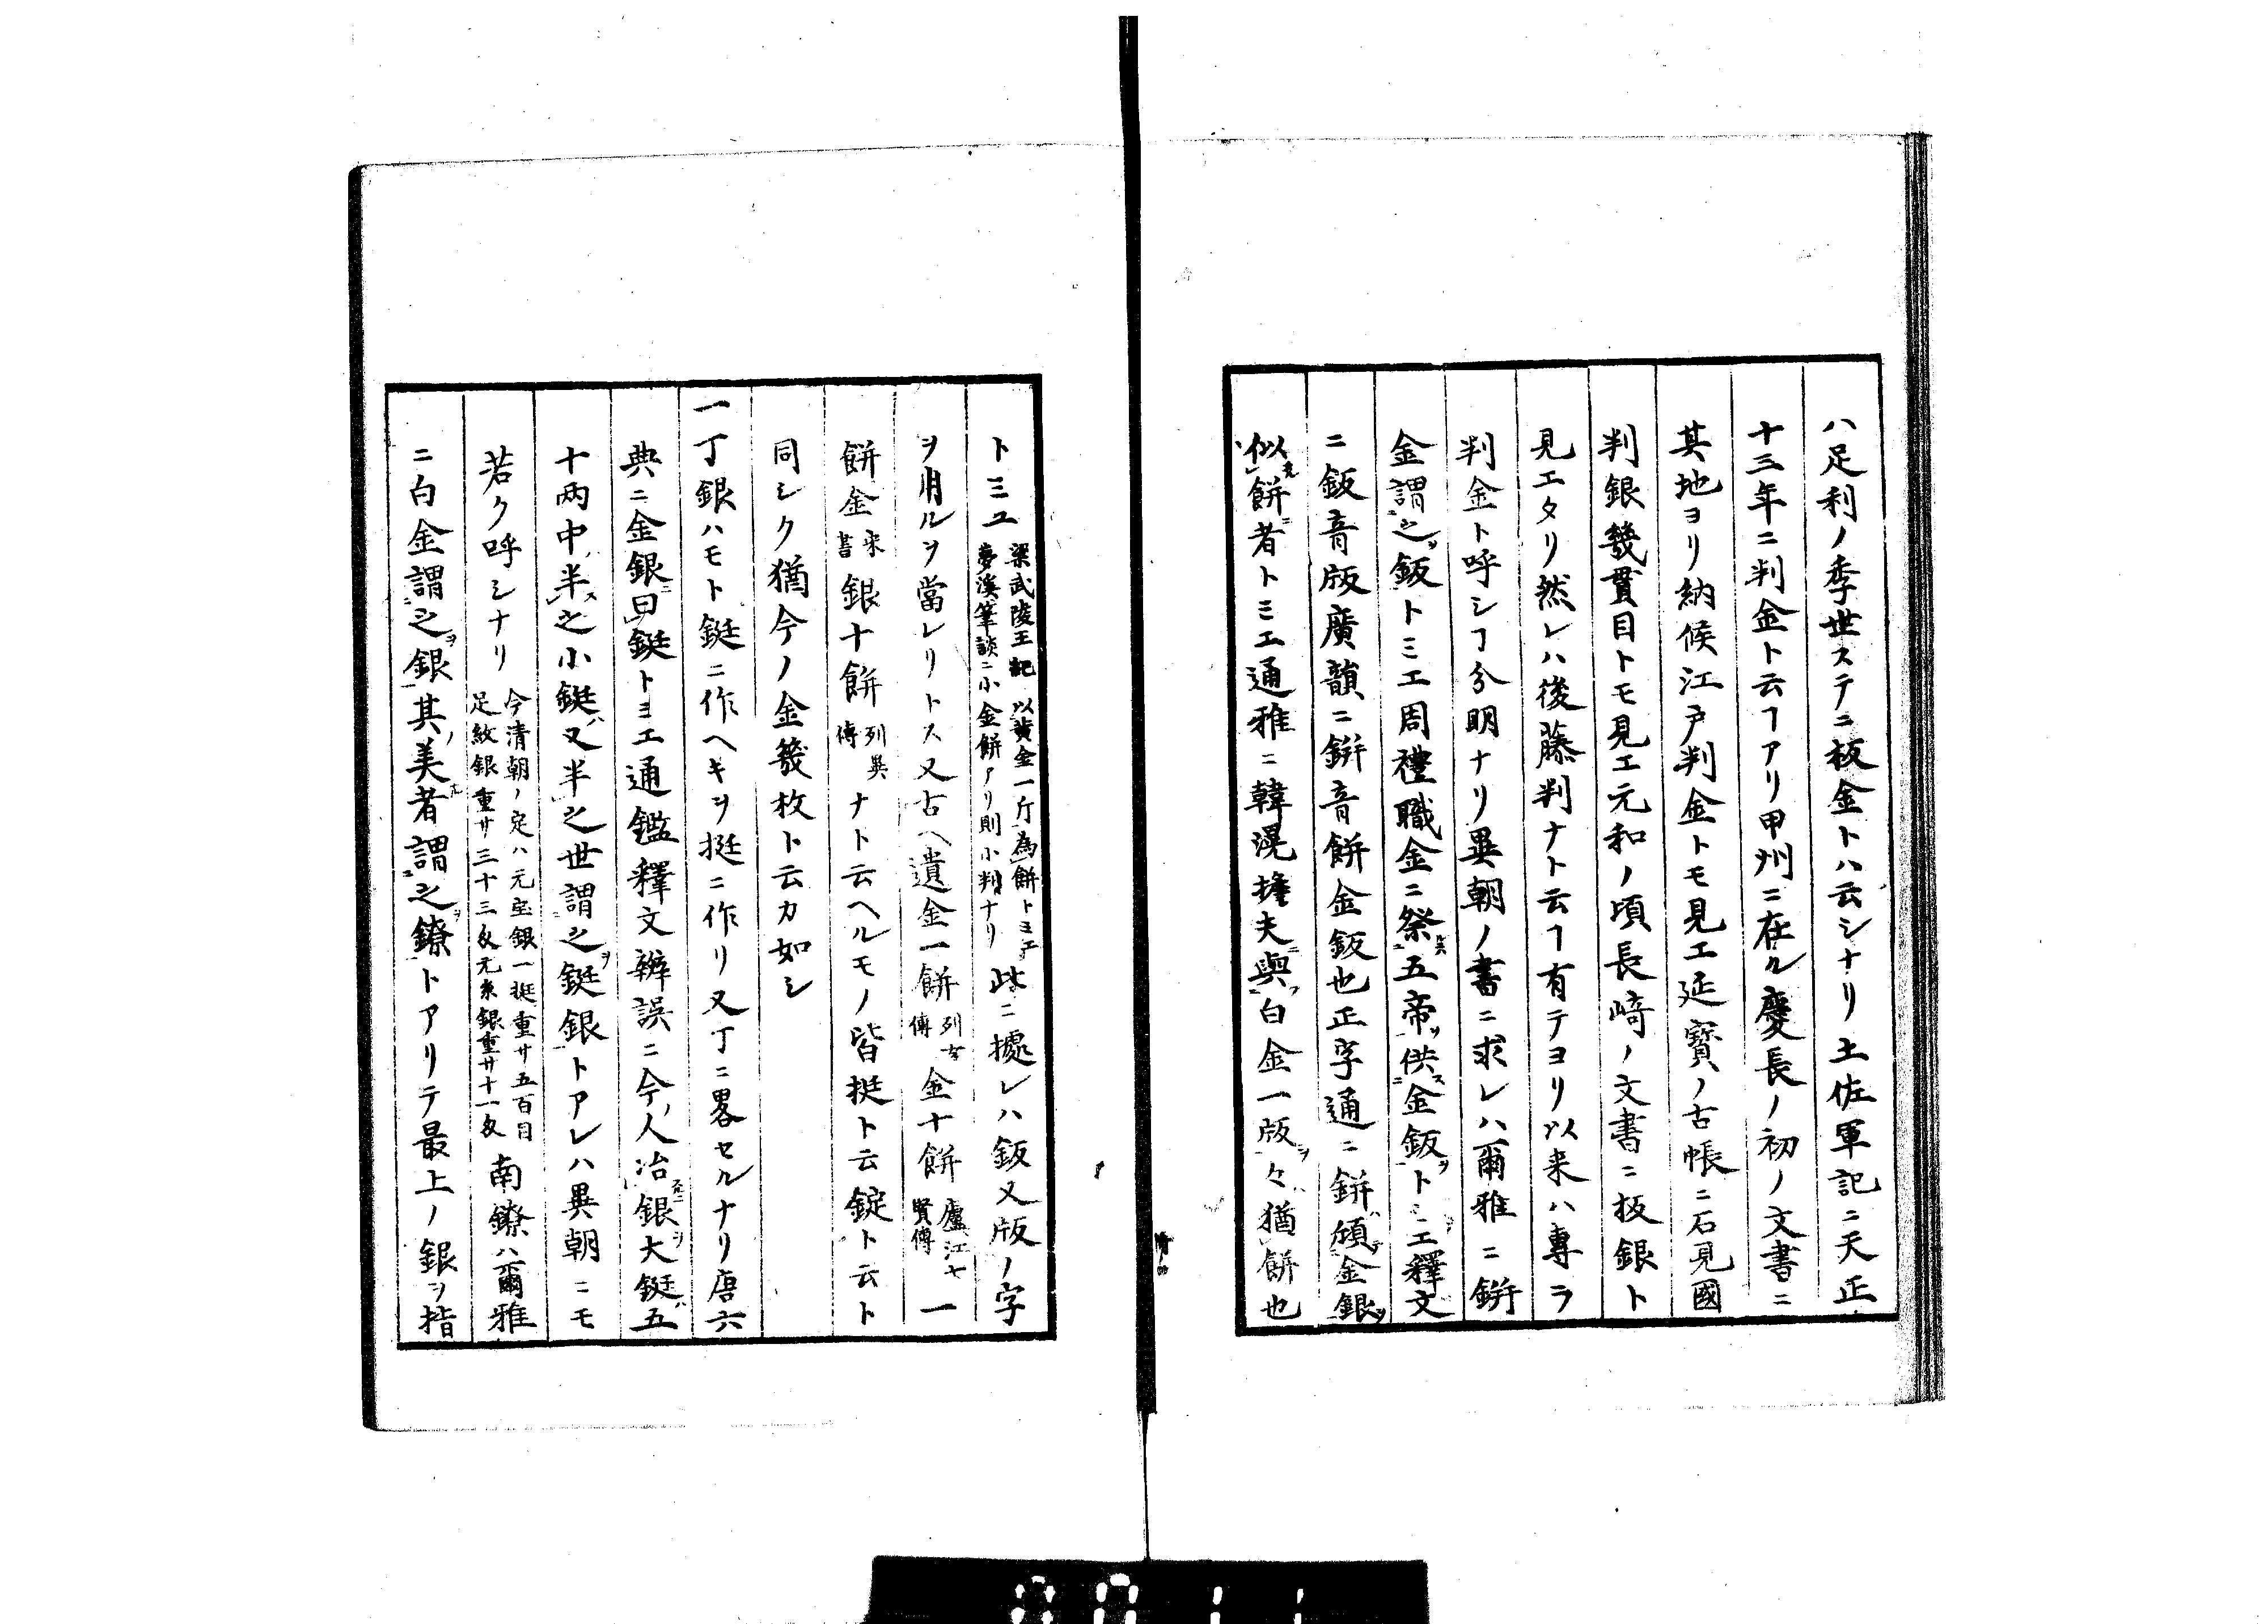 ハ足利ノ季世ステニ板金トハ云シナリ土佐軍記ニ天正
十三年ニ判金ト云ヿアリ甲州ニ在ル慶長ノ初ノ文書ニ
其地ヨリ納候江戸判金トモ見エ延寳ノ古帳ニ石見國
判銀幾貫目トモ見エ元和ノ頃長﨑ノ文書ニ板銀ト
見エタリ然レハ後藤判ナト云ヿ有テヨリ以来ハ專ラ
判金ト呼シヿ分明ナリ異朝ノ書ニ求レハ爾雅ニ鉼
金謂之鈑トミエ周禮職金ニ祭五帝供金鈑トミエ釋文
ニ鈑音版廣韻ニ鉼音餅金鈑也正字通ニ鉼傾金銀
似餅者トミエ通雅ニ韓滉擔夫與白金一版々猶餅也
トミユ梁武陵王紀以黄金一斤為餅トミエ
夢溪筆談ニ小金餅アリ則小判ナリ此ニ據レハ鈑又版ノ字
ヲ用ルヲ當レリトス又古ヘ遺金一餅列女傳金十餅廬江七賢傳一
餅金宋書銀十餅列異傳ナト云ヘルモノ皆挺ト云錠ト云ト
同シク猶今ノ金幾枚ト云カ如シ
一丁銀ハモト鋌ニ作ヘキヲ挺ニ作リ又丁ニ畧セルナリ唐六
典ニ金銀曰鋌トミエ通鑑釋文辨誤ニ今人冶銀大鋌五
十兩中半之小鋌又半之世謂之鋌銀トアレハ異朝ニモ
若ク呼シナリ今清朝ノ定ハ元宝銀一挺重サ五百目
足紋銀重サ三十三匁元糸銀重サ十一匁南鐐ハ爾雅
ニ白金謂之銀其美者謂之鐐トアリテ最上ノ銀ヲ指